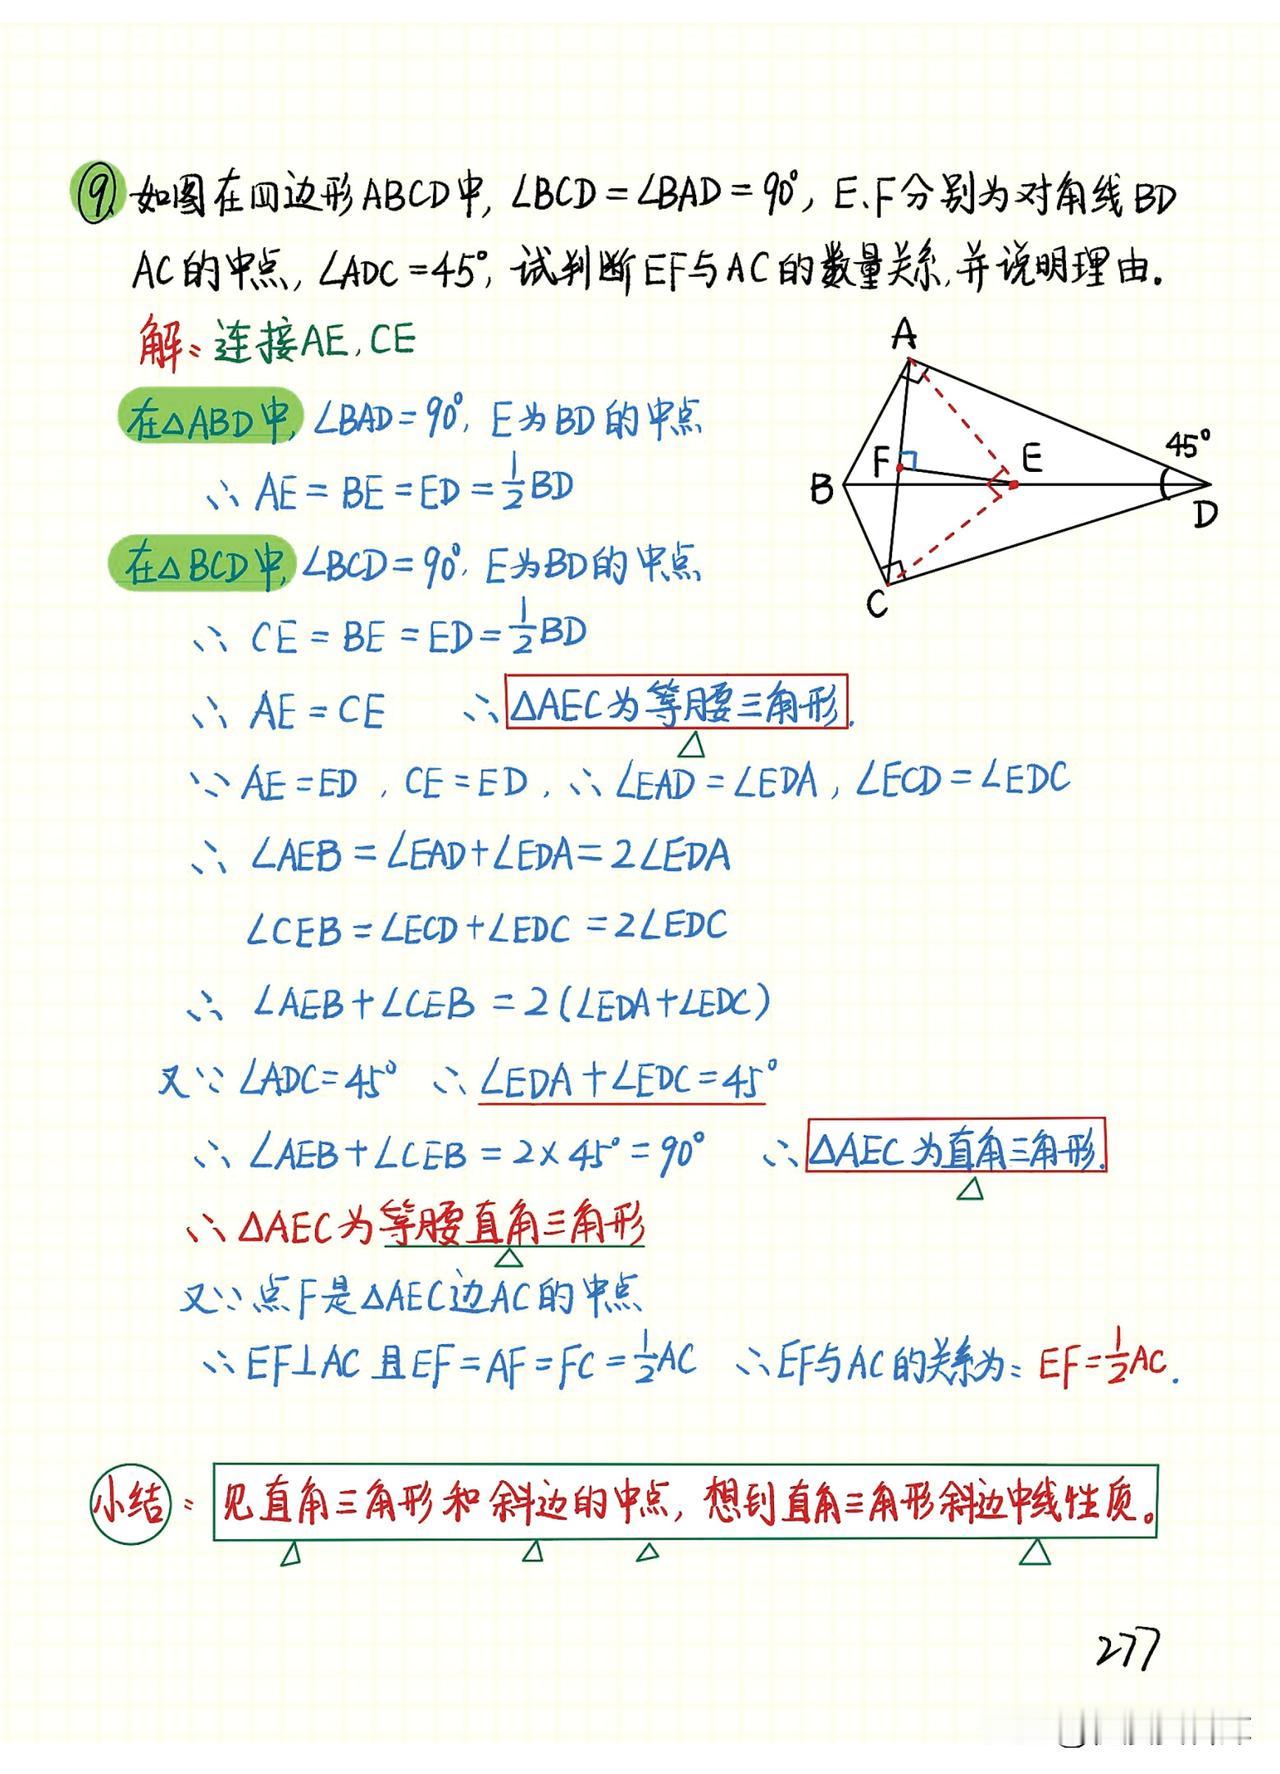 ⑨ 如图在四边形ABCD中, ∠BCD=∠BAD=90°, E、F分别为对角线BD
AC的中点, ∠ADC=45°, 试判断EF与AC的数量关系,并说明理由.
解: 连接AE, CE
在△ABD中, ∠BAD=90°, E为BD的中点
∴ AE=BE=ED=1/2BD
在△BCD中, ∠BCD=90°, E为BD的中点
∴ CE=BE=ED=1/2BD
∴ AE=CE ∴ △AEC为等腰三角形.
∵ AE=ED, CE=ED, ∴ ∠EAD=∠EDA, ∠ECD=∠EDC
∴ ∠AEB=∠EAD+∠EDA=2∠EDA
∠CEB=∠ECD+∠EDC=2∠EDC
∴ ∠AEB+∠CEB=2(∠EDA+∠EDC)
又∵ ∠ADC=45° ∴ ∠EDA+∠EDC=45°
∴ ∠AEB+∠CEB=2×45°=90° ∴ △AEC为直角三角形.
∴ △AEC为等腰直角三角形
又∵ 点F是△AEC边AC的中点
∴ EF⊥AC 且EF=AF=FC=1/2AC ∴ EF与AC的关系为: EF=1/2AC.
小结: 见直角三角形和斜边的中点, 想到直角三角形斜边中线性质。
A
45°
F
E
B
D
C
277